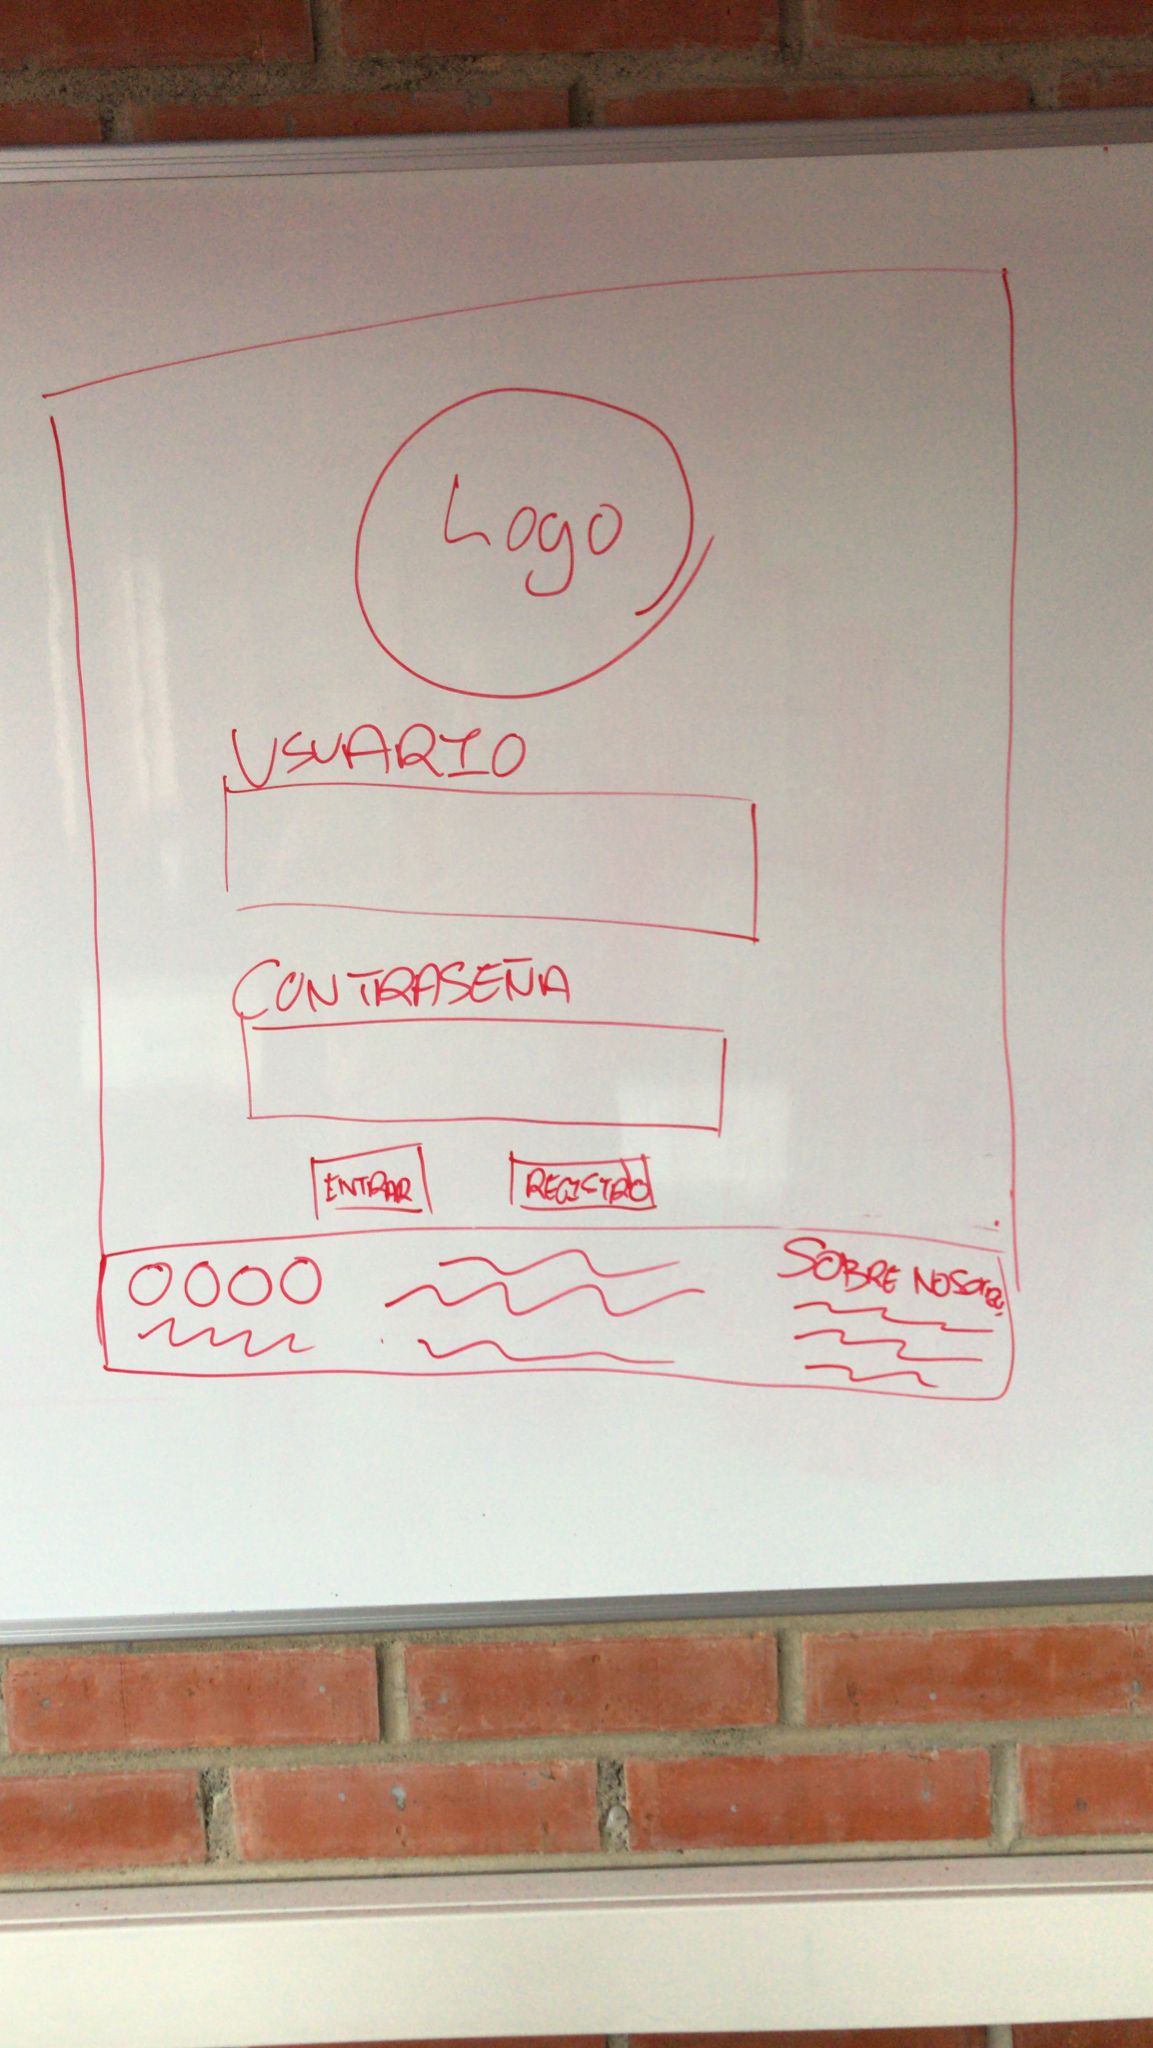 Logo
USUARIO
CONTRASEÑA
ENTRAR
REGISTRO
SOBRE NOSOTROS